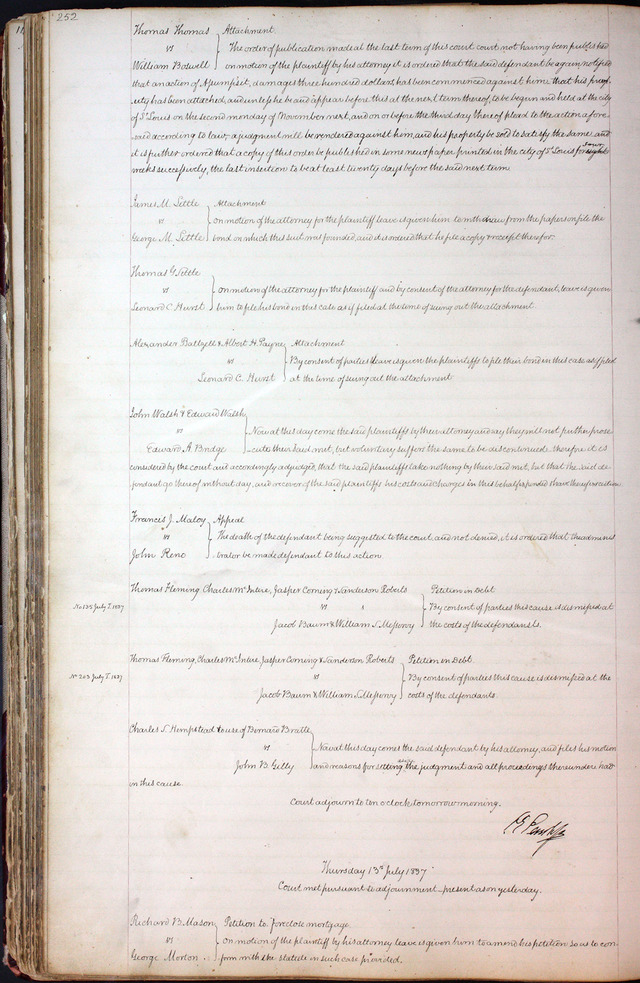 252
Thomas Thomas } Attachment.
vs The order of publication made at the last term of this court court not having been published
William Bolwell on motion of the plaintiff by his attorney it is ordered that the said defendant be again notified
that an action of Assumpsit, damages three hundred dollars has been commenced against him, that his prop-
erty has been attached, and unless he be and appear before this at the next term thereof, to be begun and held at the city
of St Louis on the second monday of November next, and on or before the third day thereof plead to the action afore-
said according to law, a judgment will be rendered against him, and his property be sold to satisfy the same, and
it is further ordered that a copy of this order be published in some newspaper printed in the city of St Louis for four
weeks successively, the last insertion to be at least twenty days before the said next term.
James M. Settle } Attachment
vs on motion of the attorney for the plaintiff leave is given him to withdraw from the papers on file the
George M. Settle bond on which this suit was founded, and it is ordered that he file a copy & receipt therefor.
Thomas G Settle
vs } on motion of the attorney for the plaintiff and by consent of the attorney for the defendant, leave is given
Leonard C. Hurst him to file his bond in this case as if filed at the time of suing out the attachment.
Alexander Baltzell & Albert H. Payne } Attachment
vs By consent of parties leave is given the plaintiffs to file their bond in this case as if filed
Leonard C. Hurst at the time of suing out the attachment
John Walsh & Edward Walsh
vs } Now at this day come the said plaintiffs by their attorney and say they will not further prose-
Edward A. Bridge cute their said suit, but voluntary suffer the same to be discontinued. therefore it is
considered by the court and accordingly adjudged, that the said plaintiffs take nothing by their said suit, but that the said de-
fendant go thereof without day, and recover of the said plaintiffs his costs and charges in this behalf expended & have therefor execution
Francis J. Matoy } Appeal
vs The death of the defendant being suggested to the court, and not denied, it is ordered that the adminis
John Reno trator be made defendant to this action.
Thomas Fleming Charles McIntire, Jasper Corning & Sanderson Roberts } Petition in Debt
No 135 July T. 1837 vs By consent of parties this cause is dismissed at
Jacob Baum & William S. Messervy the costs of the defendants.
Thomas Fleming, Charles McIntire, Jasper Corning & Sanderson Roberts } Petition in Debt
No 203 July T. 1837 vs By consent of parties this cause is dismissed at the
Jacob Baum & William S. Messervy costs of the defendants.
Charles S. Hempstead to use of Bernard Pratte
vs } Now at this day comes the said defendant by his attorney, and files his motion
John B. Gilly and reasons for setting aside the judgment and all proceedings thereunder had
in this cause.
Court adjourn to ten oclock tomorrow morning.
Thursday 13th July 1837
Court met pursuant to adjournment - present as on yesterday.
Richard B. Mason } Petition to foreclose mortgage
vs on motion of the plaintiff by his attorney leave is given him to amend his petition so as to con-
George Morton form with the statute in such case provided.